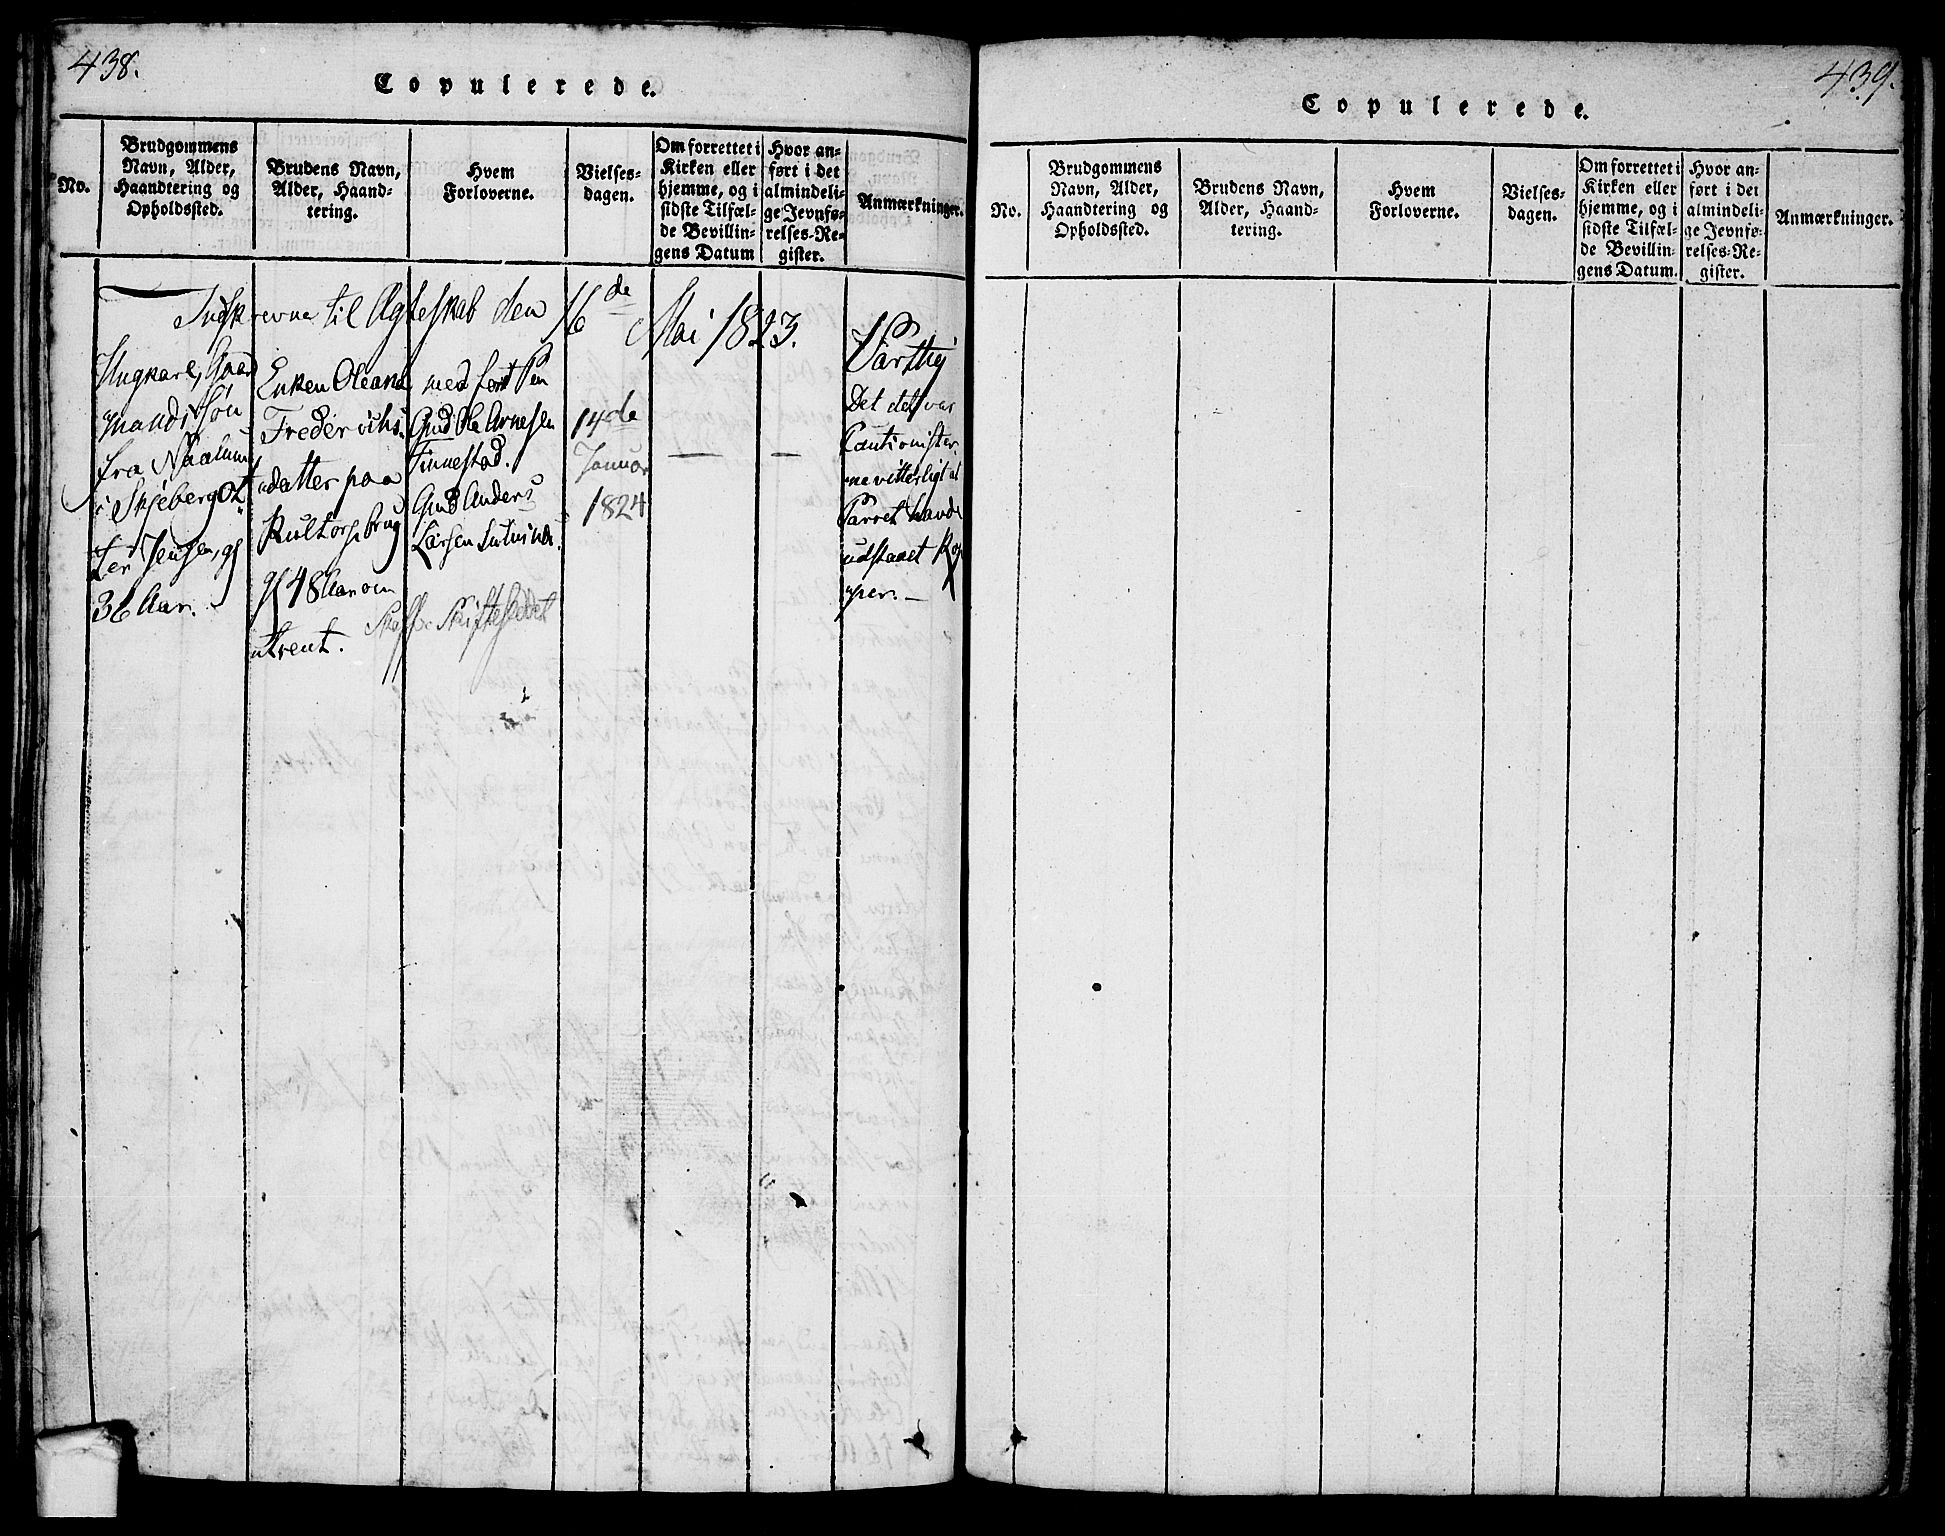 438.
Copulerede.
No.
Brudgommens
Navn, Alder,
Haandtering og
Opholdssted.
Brudens Navn,
Alder, Haand-
tering.
Hvem
Forloverne.
Vielses-
dagen.
Om forrettet i
Kirken eller
hjemme, og i
sidste Tilfæl-
de Bevillin-
gens Datum
Hvor an-
ført i det
almindeli-
ge Jevnfø-
relses-Re-
gister.
Anmærkninger.
Indskrevne til Ægteskab den 16de Mai 1823.
Ungkarl, Gaard
mands Søn
fra
i Skjeberg Ot-
ter Jensen, gl
36 Aar.
Enken Oleana
Frederichs-
datter paa
brug
gl 48 Aar om
trent.
med først
Gmd Ole Arnesen
Finnestad.
Gmd Anders
Larsen
14de
Januar
1824
—
—
Det det var
Cautionister-
ne vitterligt at
Parret havde
udstaaet Kop
per. —
439.
Copulerede.
No.
Brudgommens
Navn, Alder,
Haandtering og
Opholdssted.
Brudens Navn,
Alder, Haand-
tering.
Hvem
Forloverne.
Vielses-
dagen.
Om forrettet i
Kirken eller
hjemme, og i
sidste Tilfæl-
de Bevillin-
gens Datum.
Hvor an-
ført i det
almindeli-
ge Jevnfø-
relses-Re-
gister.
Anmærkninger.